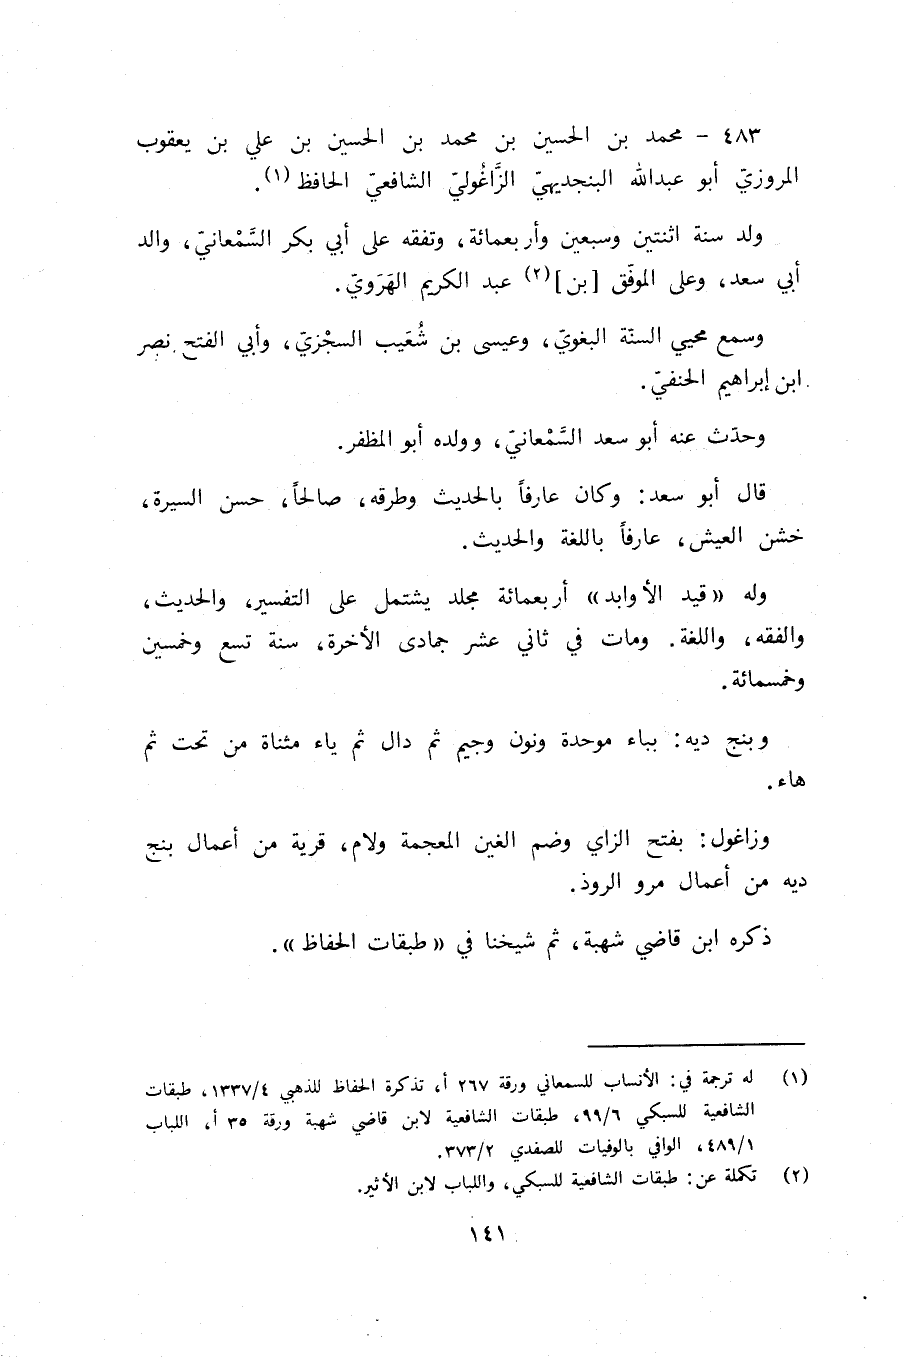 ٤٨٣ - محمد بن الحسين بن محمد بن الحسين بن علي بن يعقوب
المروزيّ أبو عبدالله البنجديهيّ الزَّاغُوليّ الشافعيّ الحافظ (١).
ولد سنة اثنتين وسبعين وأربعمائة، وتفقه على أبي بكر السَّمْعانيّ، والد
أبي سعد، وعلى الموفّق [بن] (٢) عبد الكريم الهَرَويّ.
وسمع محيي السنّة البغويّ، وعيسى بن شُعَيب السجْزيّ، وأبي الفتح نصر
ابن إبراهيم الحنفيّ.
وحدّث عنه أبو سعد السَّمْعانيّ، وولده أبو المظفر.
قال أبو سعد: وكان عارفاً بالحديث وطرقه، صالحاً، حسن السيرة،
خشن العيش، عارفاً باللغة والحديث.
وله «قيد الأوابد» أربعمائة مجلد يشتمل على التفسير، والحديث،
والفقه، واللغة. ومات في ثاني عشر جمادى الأخرة، سنة تسع وخمسين
وخمسمائة.
وبنج ديه: بباء موحدة ونون وجيم ثم دال ثم ياء مثناة من تحت ثم
هاء.
وزاغول: بفتح الزاي وضم الغين المعجمة ولام، قرية من أعمال بنج
ديه من أعمال مرو الروذ.
ذكره ابن قاضي شهبة، ثم شيخنا في «طبقات الحفاظ».
(١) له ترجمة في: الأنساب للسمعاني ورقة ٢٦٧ أ، تذكرة الحفاظ للذهبي ١٣٣٧/٤، طبقات
الشافعية للسبكي ٩٩/٦، طبقات الشافعية لابن قاضي شهبة ورقة ٣٥ أ، اللباب
٤٨٩/١، الوافي بالوفيات للصفدي ٣٧٣/٢.
(٢) تكملة عن: طبقات الشافعية للسبكي، واللباب لابن الأثير.
١٤١